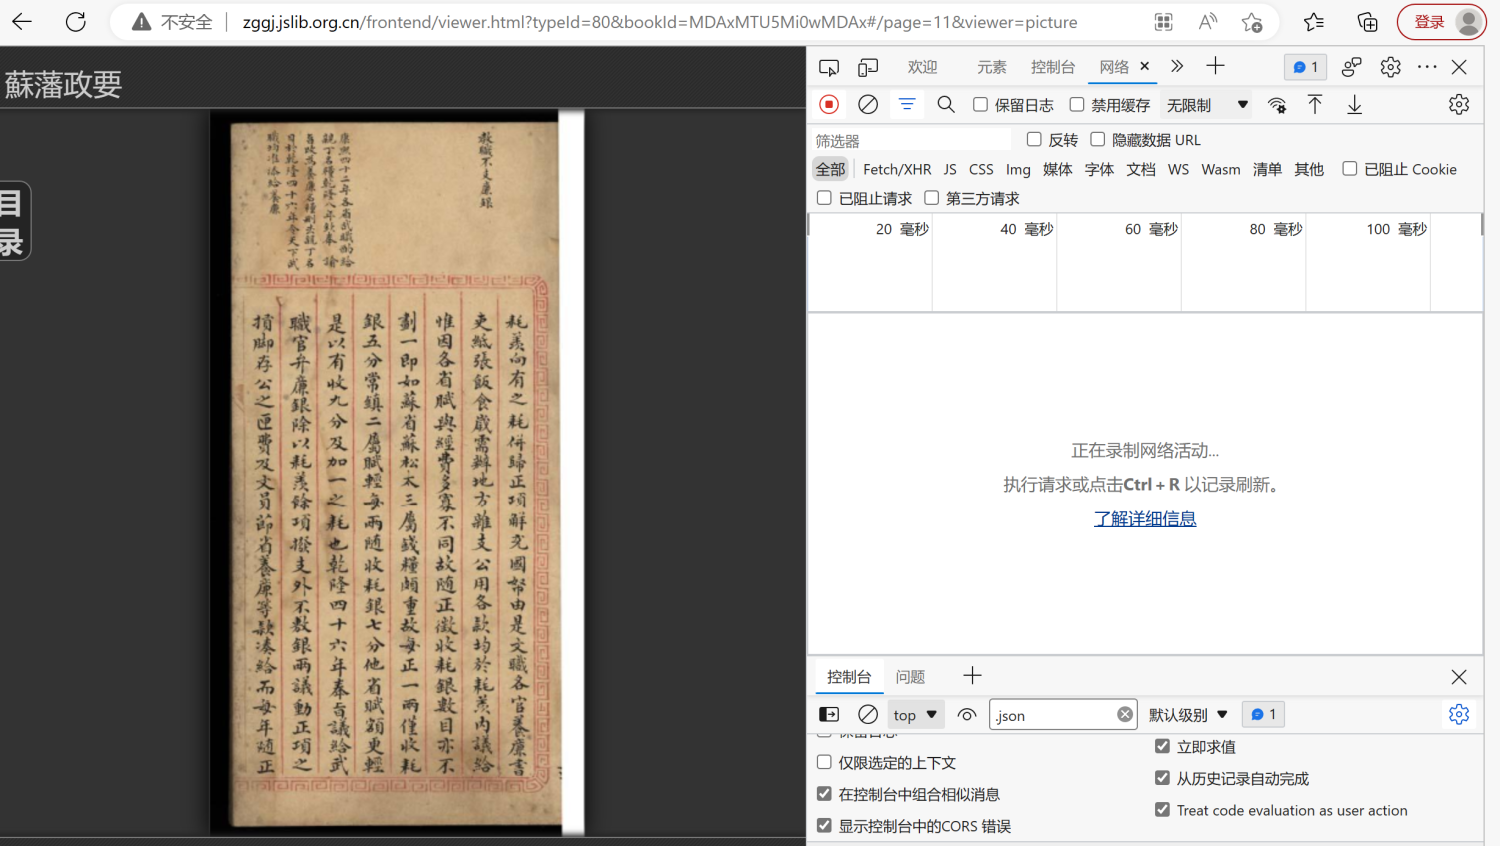 不安全
zggj.jslib.org.cn/frontend/viewer.html?typeId=80&bookId=MDAxMTU5Mi0wMDAx#/page=11&viewer=picture
登录
蘇藩政要
目
录
教職不支廉銀
康熙四十二年各省武職酌給
親丁名糧乾隆八年欽奉 諭
旨改為養廉名糧刪去親丁名
目於乾隆四十六年令天下武
職均准添給養廉
耗羨向有之耗併歸正項觧充國帑由是文職各官養廉書
吏紙張飯食歲需辦地方雜支公用各款均於耗羨内議給
惟因各省賦與經費多寡不同故随正徵收耗銀數目亦不
劃一即如蘇省蘇松太三屬錢糧頗重故每正一兩僅收耗
銀五分常鎮二屬賦輕每兩随收耗銀七分他省賦額更輕
是以有收九分及加一之耗也乾隆四十六年奉旨議給武
職官弁廉銀除以耗羨餘項撥支外不敷銀兩議動正項之
損脚存公之匣費及文員節省養廉等款湊給而每年随正
欢迎
元素
控制台
网络
1
保留日志
禁用缓存
无限制
筛选器
反转
隐藏数据 URL
全部
Fetch/XHR
JS
CSS
Img
媒体
字体
文档
WS
Wasm
清单
其他
已阻止 Cookie
已阻止请求
第三方请求
20 毫秒
40 毫秒
60 毫秒
80 毫秒
100 毫秒
正在录制网络活动...
执行请求或点击Ctrl + R 以记录刷新。
了解详细信息
控制台
问题
top
.json
默认级别
1
保留日志
立即求值
仅限选定的上下文
从历史记录自动完成
在控制台中组合相似消息
Treat code evaluation as user action
显示控制台中的CORS 错误